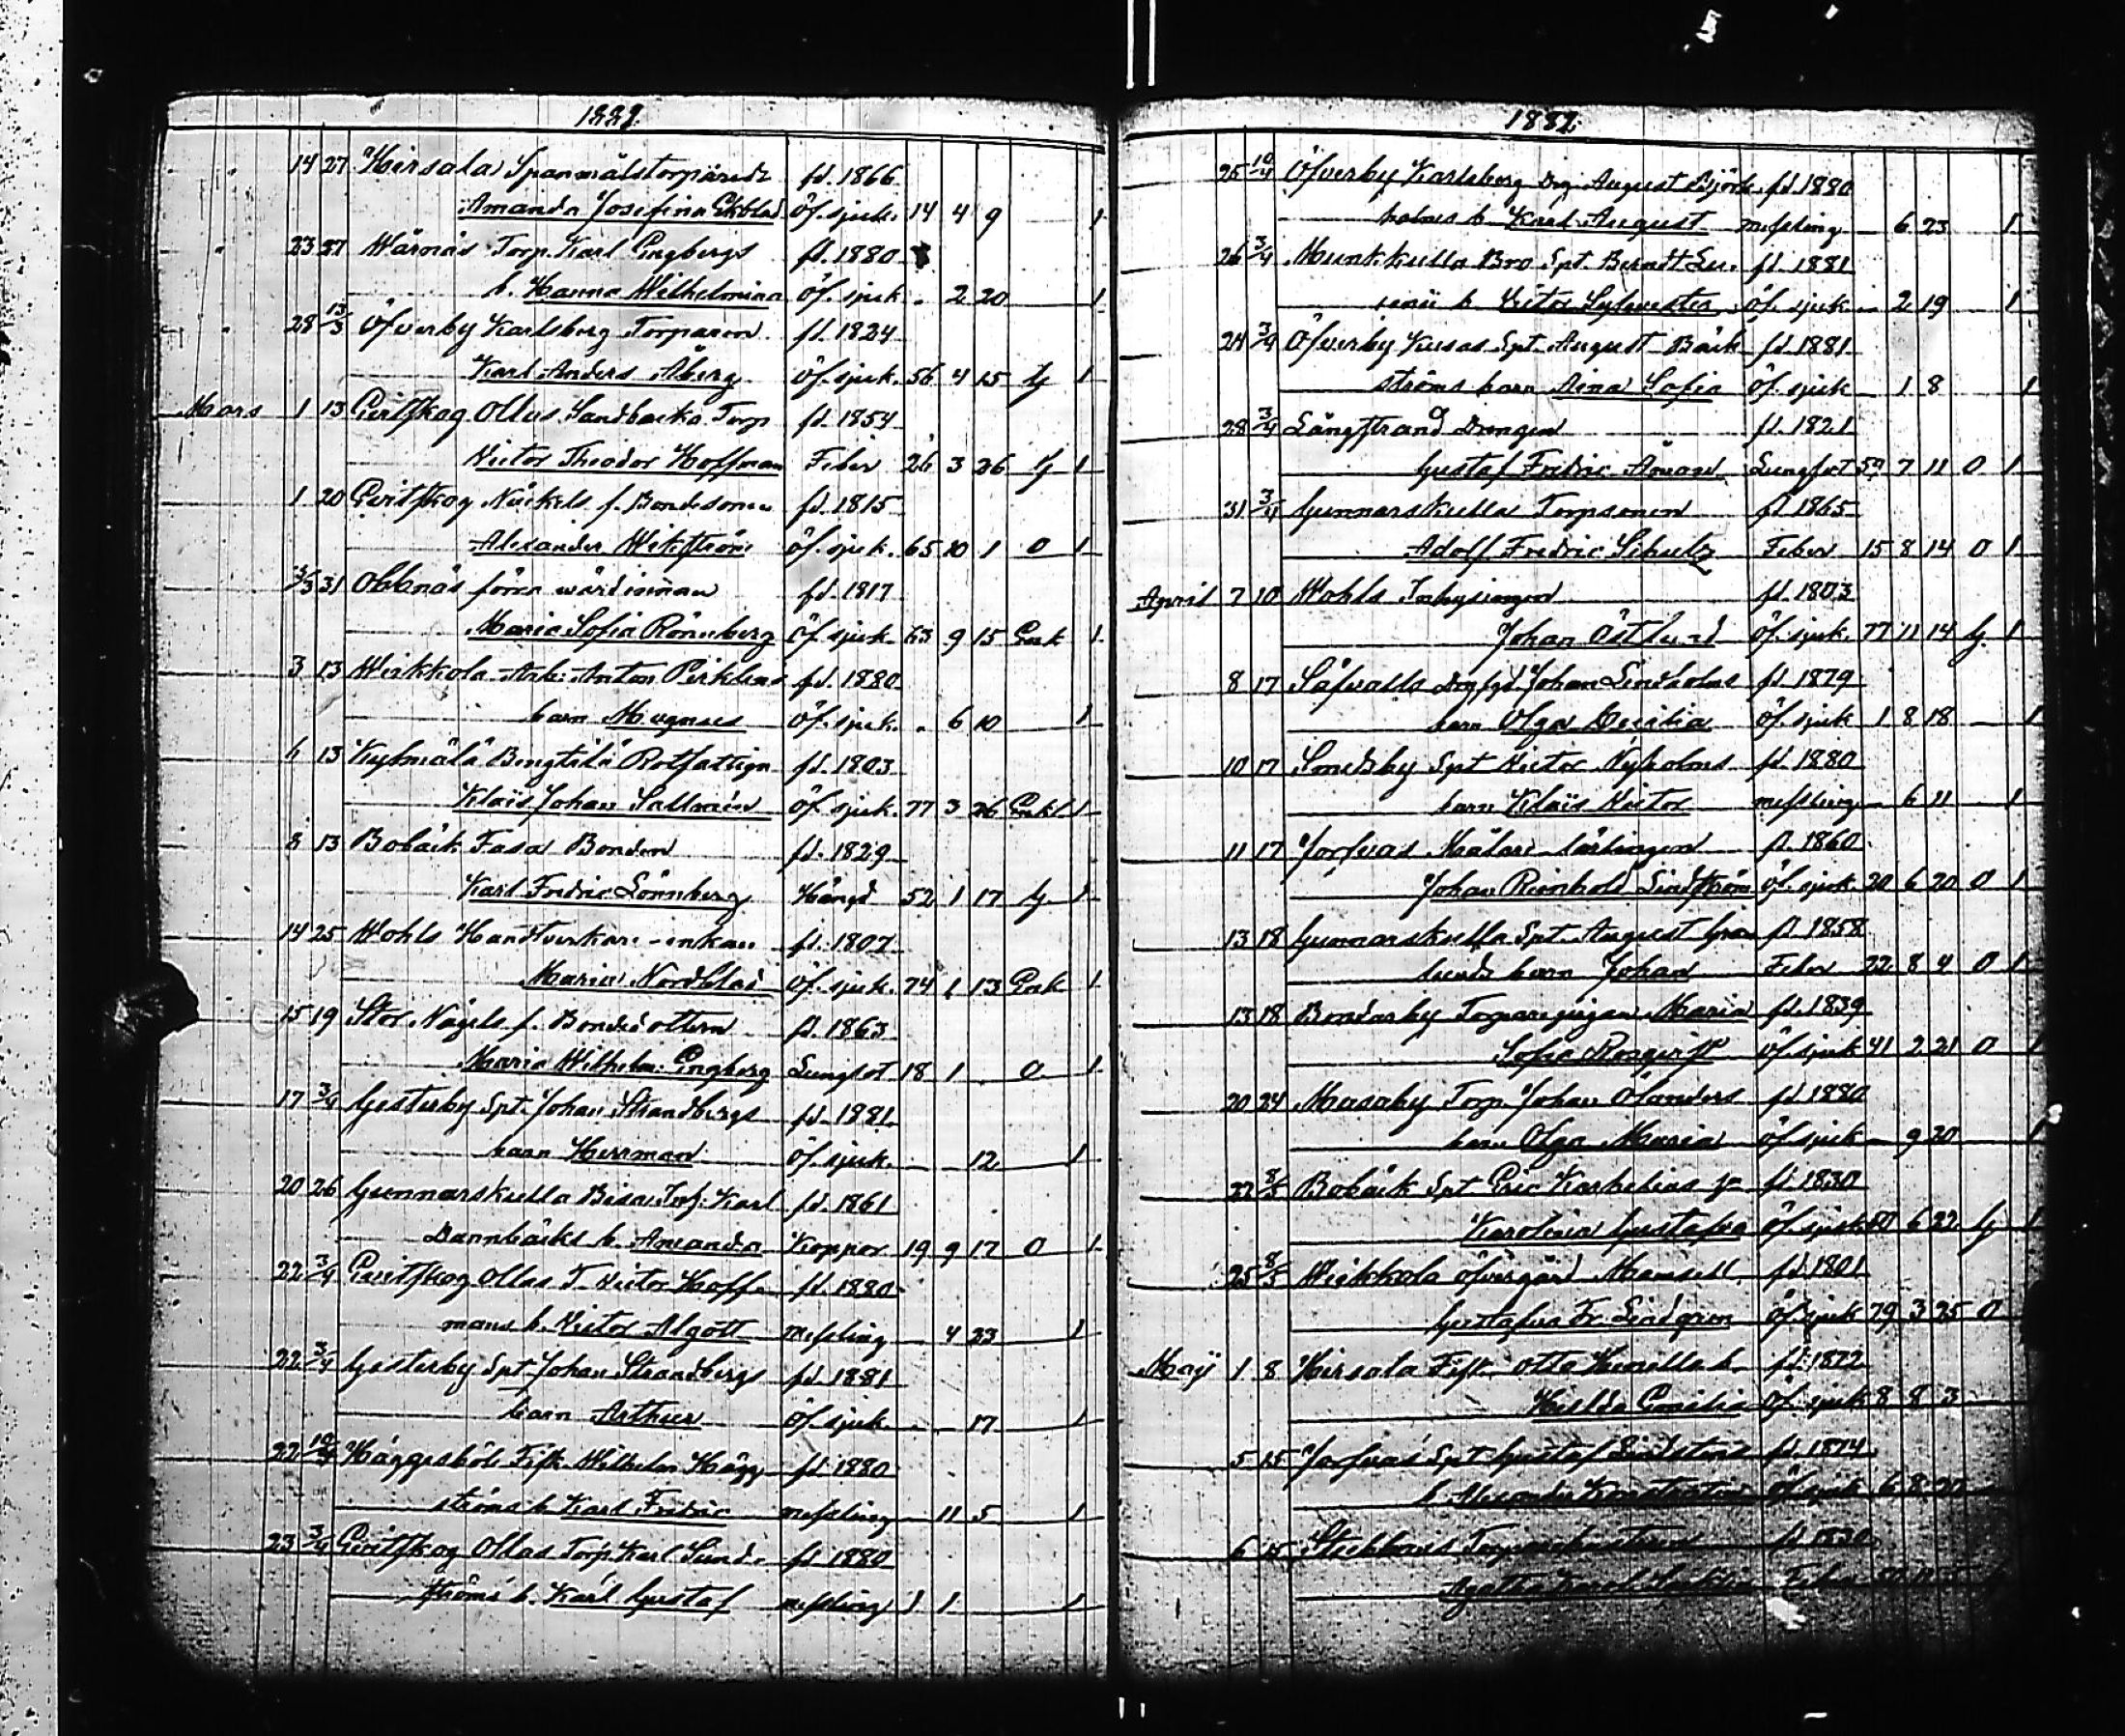 1881.
14 27 Hirsala Spanmålstorparedr fd. 1866
Amanda Josefina Ekblad öf. sjuk. 14 4 9 1
23 27 Wärnäs Torp. Karl Engbergs fd. 1880
b. Hanna Wilhelmina öf. sjuk. 2 20 1
28 13/3 Öfverby Karlsberg Torparen fd. 1824
Karl Anders Åberg öf. sjuk. 56 4 15 G 1
Mars 1 13 Evitskog Ollas Sandbacka Torp fd. 1854
Victor Theodor Hoffman Feber 26 3 26 G 1
1 20 Evitskog Nickels f. Bondesonen fd. 1815
Alexander Wikström öf. sjuk. 65 10 1 O 1
3/3 31 Obbnäs förra wärdinnan fd. 1817
Maria Sofia Rönnberg öf. sjuk. 63 9 15 Enk 1
3 13 Weikkola Arb. Anton
barn Magnus öf. sjuk. 6 10 1
13 Kylmälä Bengtilä Rotfattige fd. 1803
Klais Johan Sallmén öf. sjuk. 77 3 26 Enkl 1
8 13 Bobäck Fasa Bonden fd. 1829
Karl Fredric Lönnberg Hängd 52 1 17 G 1
14 25 Wohls Handtverkare-enkan fd. 1807
Maria Nordblad öf. sjuk. 74 1 13 Enk 1
15 19 Stor Nägels f. Bondedottern fd. 1863
Maria Wilhelm. Engberg Lungsot 18 1 O 1
17 3/4 Gesterby Spt. Johan Strandbergs fd. 1881
barn Herrman öf. sjuk. 12 1
20 26 Gunnarskulla Karl fd. 1861
Dannbäcks h. Amanda Koppor 19 9 17 O 1
22 3/4 Evitskog Ollas T. Victor Hoff- fd. 1880
mans b. Victor Algott messling 4 23 1
22 3/4 Gesterby Spt. Johan Strandbergs fd. 1881
barn Arthur öf. sjuk. 17 1
22 10/4 Häggesböle Fisk. Wilhelm Hägg- fd. 1880
ströms b. Karl Fredric messling 11 5 1
23 3/4 Evitskog Ollas Torp. Karl Sund- fd. 1880
ströms b. Karl Gustaf messling 1 1 1
1881.
25 10/4 Öfverby Karlsberg Drg. August Björk- fd. 1880
holms b. Karl August messling 6 23 1
26 3/4 Munkkulla Bro Spt. Berndt fd. 1881
b. Victor Sylvester öf. sjuk 2 19 1
24 3/4 Öfverby Kusas Spt. August Bäck- fd. 1881
ströms barn Aina Sofia öf. sjuk 1 8 1
28 3/4 Långstrand Drengen fd. 1821
Gustaf Fredric Lungsot 59 7 11 O 1
31 3/4 Gunnarskulla Torpsonen fd. 1865
Adolf Fredric Schulz Feber 15 8 14 O 1
April 7 10 Wohls Inhysingen fd. 1803
Johan Östlund öf. sjuk. 77 11 14 G. 1
8 17 Johan Lindholms fd. 1879
barn Olga Cecilia öf. sjuk 1 8 18 1
10 17 Smedsby Spt Victor Nyholms fd. 1880
barn Klais Victor messling 6 11 1
11 17 Jorfvas Målare-lärlingen fd. 1860
Johan Reinhold Lindström öf. sjuk. 20 6 20 O 1
13 18 Gunnarskulla Spt. August Gran- fd. 1858
lunds barn Johan Feber 22 8 4 O 1
13 18 Bondarby Torparepigan Maria fd. 1839
Sofia öf. sjuk 41 2 21 O 1
20 24 Masaby Torp. Johan Ölanders fd. 1880
barn Olga Maria öf. sjuk 9 20 1
22 8/5 Bobäck Spt. Eric fd. 1830
Karolina Gustafva öf. sjuk 50 6 22 G 1
25 8/5 Weikkola Öfvergård Mamsell fd. 1801
Gustafva Fr. Lindgren öf. sjuk 79 3 25 O
Maj 1 8 Hirsala Fisk. Otto b. fd. 1872
Hilda öf. sjuk 8 8 3
5 15 Jorfvas Spt Gustaf Lindstens fd. 1874
b. Alexander Konstantin öf. sjuk 6 8 20
6 15 fd. 1830
Agatha Feber